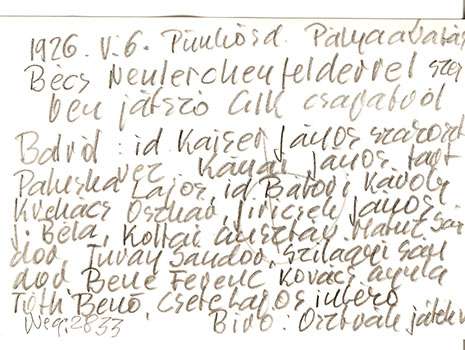 1926. V. 6. Pünkösd. Pályaavatás
Bécs Neulerchenfelderrel szem
ben játszó CIK csapatból
Balról: id Kaiser János szakoszt
vez. Kánai János, tart
Paluska Lajos, id Batori Károly
Kuchács Osztáv, Jiricsek János
J. Béla, Koltai Gusztáv, Sán
dor, Turay Sandor, Szilágyi San
dor Bene Ferenc, Kovács Gyula
Tóth Benő, Csere Lajos intéző
Neg: 2833 Biró: Osztván játékv